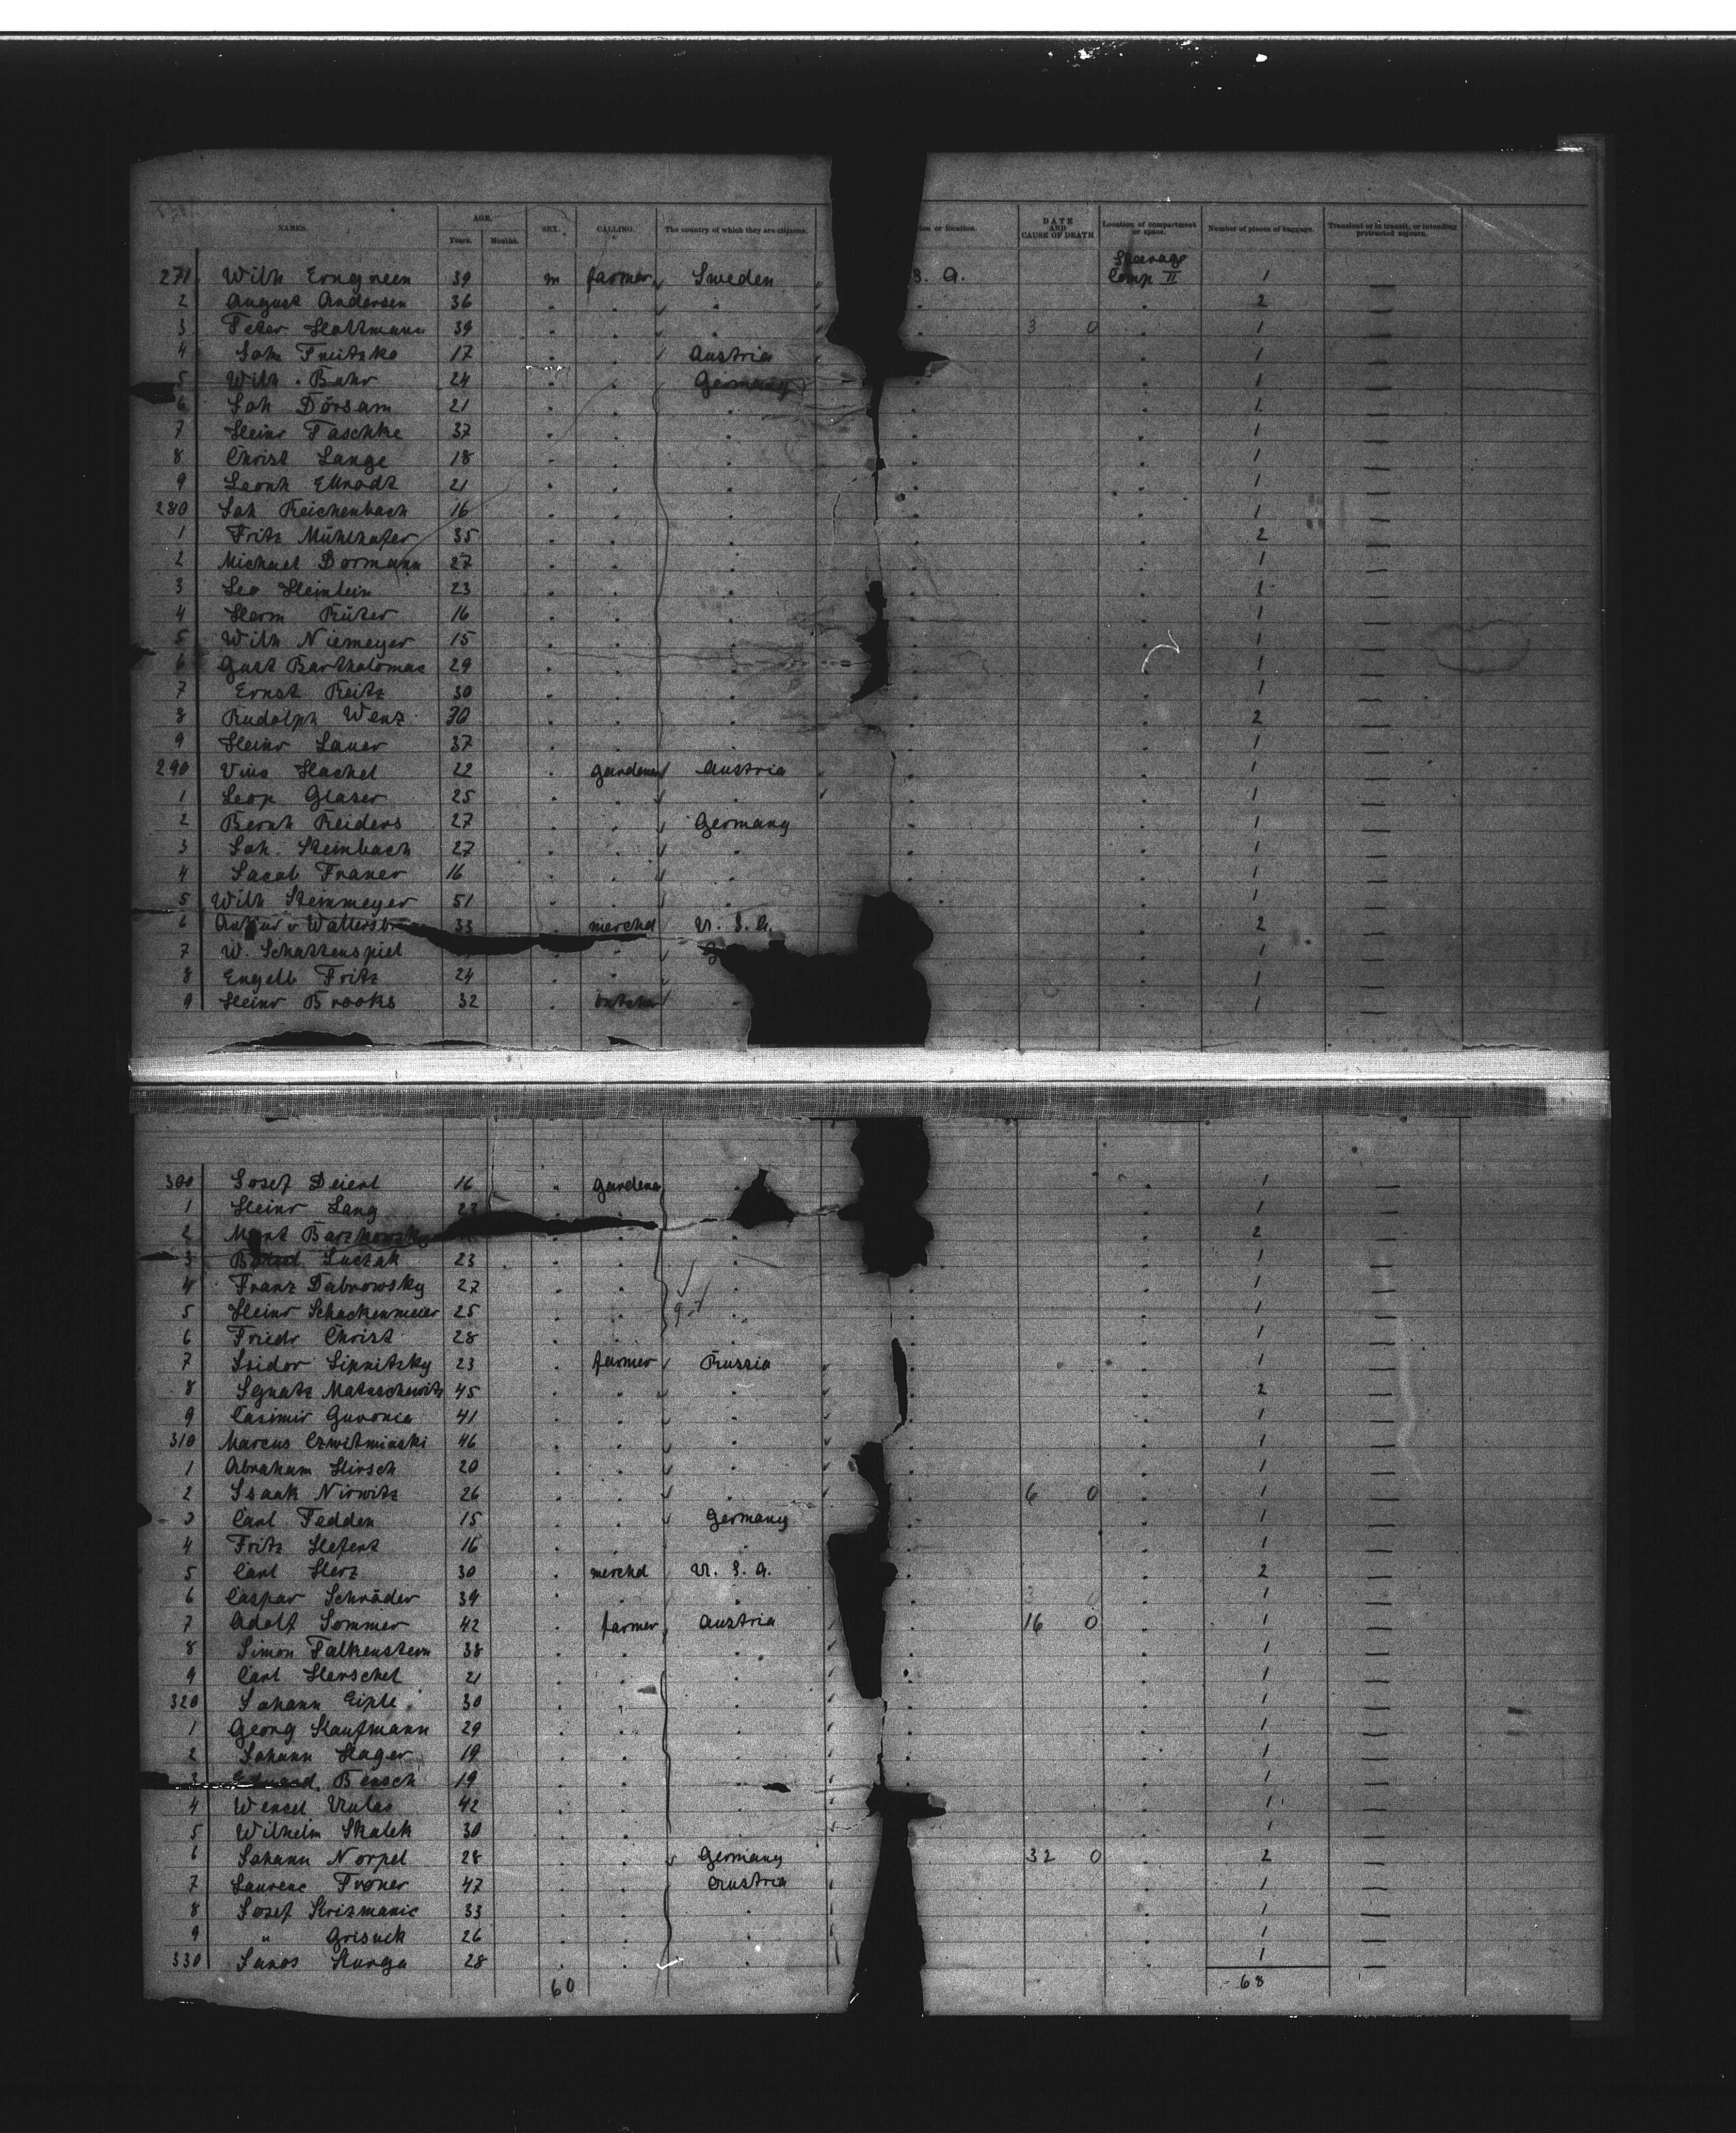 NAMES. AGE. Years. Months. SEX. CALLING. The country of which they are citizens. or location. DATE AND CAUSE OF DEATH Location of compartment or space. Number of pieces of baggage. Transient or in transit, or intending protracted sojourn.
Steerage
271 Wilh Erngreen 39 m farmer Sweden S. A. Comp II 1 —
2 August Andersen 36 . . . . . 2 —
3 Peter Holtmann 39 . . . . 3 0 . 1 —
4 Joh Treitzke 17 . . Austria . . 1 —
5 Wilh. Buhr 24 . . Germany . . 1 —
6 Joh Dörsam 21 . . . . . 1 —
7 Heinr Paschke 37 . . . . . 1 —
8 Christ Lange 18 . . . . . 1 —
9 Leonh Ellrodt 21 . . . . . 1 —
280 Joh Reichenbach 16 . . . . . 1 —
1 Fritz Mühlhafer 35 . . . . . 2 —
2 Michael Dormann 27 . . . . . 1 —
3 Leo Heinlein 23 . . . . . 1 —
4 Herm Rüter 16 . . . . . 1 —
5 Wilh Niemeyer 15 . . . . . 1 —
6 Gust Bartholomae 29 . . . . . 1 —
7 Ernst Reitz 30 . . . . . 1 —
8 Rudolph Wenz 30 . . . . . 2 —
9 Heinr Lauer 37 . . . . . 1 —
290 Hachel 22 . gardener Austria . . 1 —
1 Leop Glaser 25 . . . . . 1 —
2 Bernh Reiders 27 . . Germany . . 1 —
3 Joh. Steinbach 27 . . . . . 1 —
4 Jacob Franer 16 . . . . . 1 —
5 Wilh Steinmeyer 51 . . . . . 1 —
6 33 . merchd U. S. A. . 2 —
7 W. Schattenspiel . . . 1 —
8 Engelb Fritz 24 . . . . 1 —
9 Heinr Brooks 32 . butcher . . 1 —
300 Josef Deierl 16 . gardener . . 1 —
1 Heinr Lang 23 . . . 1 —
2 . . . . 2 —
3 Luczak 23 . . . . 1 —
4 Franz Dabrowsky 27 . . . . . 1 —
5 Heinr Schackenmeier 25 . . . . . 1 —
6 Friedr Christ 28 . . . . . 1 —
7 Isidor Lipnitzky 23 . farmer Russia . . 1 —
8 Ignatz Mataschewitz 45 . . . . . 2 —
9 Casimir Guronia 41 . . . . . 1 —
310 Marcus Czwitminski 46 . . . . . 1 —
1 Abraham Hirsch 20 . . . . . 1 —
2 Isaak Nirwitz 26 . . . . 6 0 . 1 —
3 Carl Fedden 15 . . Germany . . 1 —
4 Fritz Hefert 16 . . . . . 1 —
5 Carl Herz 30 . merchd U. S. A. . . 2 —
6 Caspar Schröder 39 . . . . 3 0 . 1 —
7 Adolf Sommer 42 . farmer Austria . 16 0 . 1 —
8 Simon Falkenstein 38 . . . . . 1 —
9 Carl Herschel 21 . . . . . 1 —
320 Johann Eiple 30 . . . . . 1 —
1 Georg Kaufmann 29 . . . . . 1 —
2 Johann Hager 19 . . . . . 1 —
3 Eduard Bensch 19 . . . . 1 —
4 Wenzel 42 . . . . 1 —
5 Wilhelm Skalek 30 . . . . 1 —
6 Johann Norpel 28 . . Germany 32 0 . 2 —
7 Laurenc Froner 47 . . Austria . 1 —
8 Josef Krizmanic 33 . . . . 1 —
9 " Grisnek 26 . . . . 1 —
330 Janos Hunga 28 . . . . 1 —
60 68